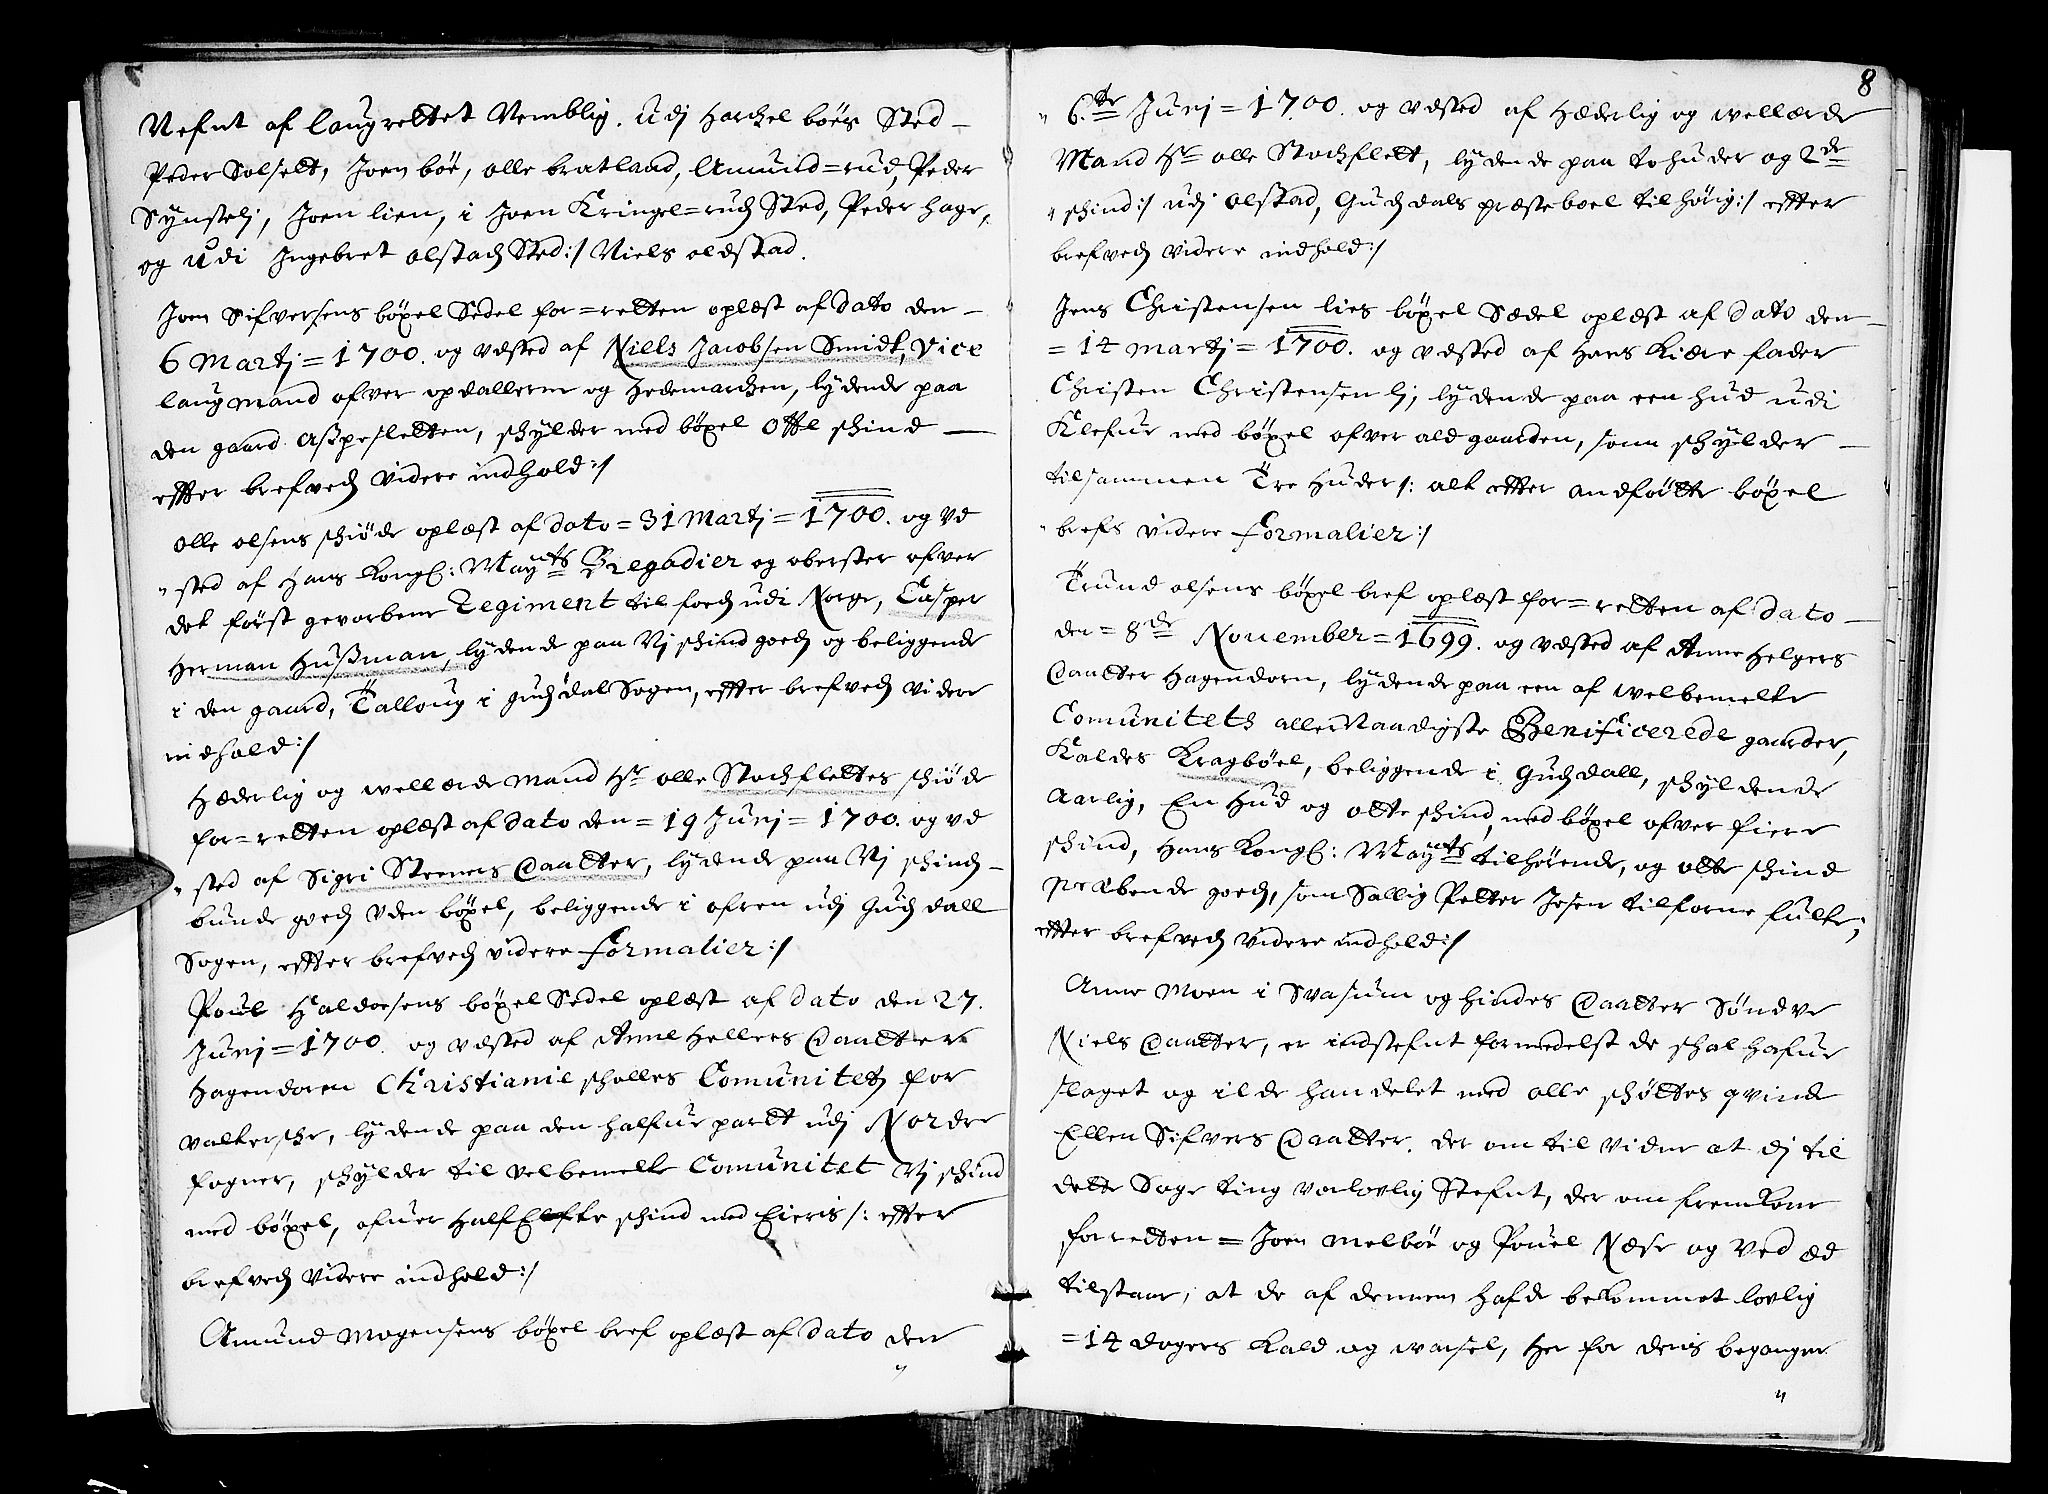 Nefnt af laugrettet Nemblig. udj Harchel böes Sted-
Peder Solfelt, Joen böe, olle bratland, Amund=rud, Peder
Synstelj, Joen lien, i Joen Kringel=ruds Sted, Peder Hage,
og udi Ingebret olstads Sted:/ Niels oldstad.
Joen Sifversens böxel Sedel for=retten oplæst af dato den-
6 Martj=1700. og vdsted af Niells Jacobsen Smidt, Vice
laugmand ofver opdallerne og Hedemarchen, lydende paa
den gaard Aspesletten, schylder med böxel Otte schind —
effter brefveds videre indhold:/
olle olsens schiöde oplæst af dato = 31 Martj = 1700. og vd
"sted af Hans Kongl: Mayts Bregadier og oberster ofver
det först gevorbene Regiment til foeds udi Norge, Casper
Herman Hussman, lydende paa Vj schind goeds og beliggende
i den gaard, Talloug i Gudsdal Sogen, effter brefveds videre
indhold:/
Hæderlig og wellærde Mand Hr olle Stochflettes schiöde
for=retten oplæst af dato den = 19 Junj = 1700. og vd
"sted af Sigri Steeners Daatter, lydende paa Vj schinds-
bunde goeds vden böxel, beliggende i ofren udj Guds dall
Sogen, effter brefveds videre formalier:/
Poul Haldoesens böxel Sedel oplæst af dato den 27.
Junj = 1700. og vdsted af Anne Hellers Daatter
Hagendoren Christianie scholles Comunitets for
valtersche, lydende paa den halfue partt udj Nordre
fogner, schylder til velbemelte Comunitet Vj schind
med böxel, ofuer Half Elfte schind med Eieris /: effter
brefveds videre indhold:/
Amund Mogensens böxel bref oplæst af dato den
"
8
" 6.te Junj = 1700. og vdsted af Hæderlig og wellærde
Mand Hr olle Stochflett, lydende paa to huder og 2de
" schind:/ udj olstad, Gudsdals præsteboel tilhörig:/ effter
brefveds videre indhold:/
Jens Christensen lies böxel Sædel oplæst af dato den-
= 14 martj = 1700. og vdsted af Hans Kiære fader
Christen Christensen lj, lydende paa een hud udi
Klefue med böxel ofver ald gaarden, som schylder —
tilsammen Tre Huder /: alt effter andförtte böxel
" brefs videre formalier:/
Trund olsens böxel bref oplæst for=retten af dato —
den = 8de November = 1699. og vdsted af Anne Helgers
Daatter Hagendorn, lydende paa een af welbemelte
Comunitets allernaadigste Benificerede gaarder,
Kaldes Kragböel, beliggende i Gudsdall, schyldende
aarlig, En Hud og otte schind, med böxel ofver fiere
schind, Hans Kongl: Mayts tilhörende, og otte schind
præbende goeds, som Sallig Petter Jesen tilforne fulte,
effter brefveds videre indhold:/
Anne Moen i Svasum og hindes Daatter Söndve
Niels Daatter, er indstefnt formedelst de schal hafue
slaget og ilde handelet med olle schöttes qvinde
Ellen Sifvers Daatter. der om til vidne at dj til
dette Sage ting var lovlig Stefnt, der om fremkom
for retten = Joen Melböe og Pouel Næse og Ved æd
tilstaar, at de af dennem hafde bekommet lovlig
= 14 dogers Kald og warsel, Her for deris begangne
"